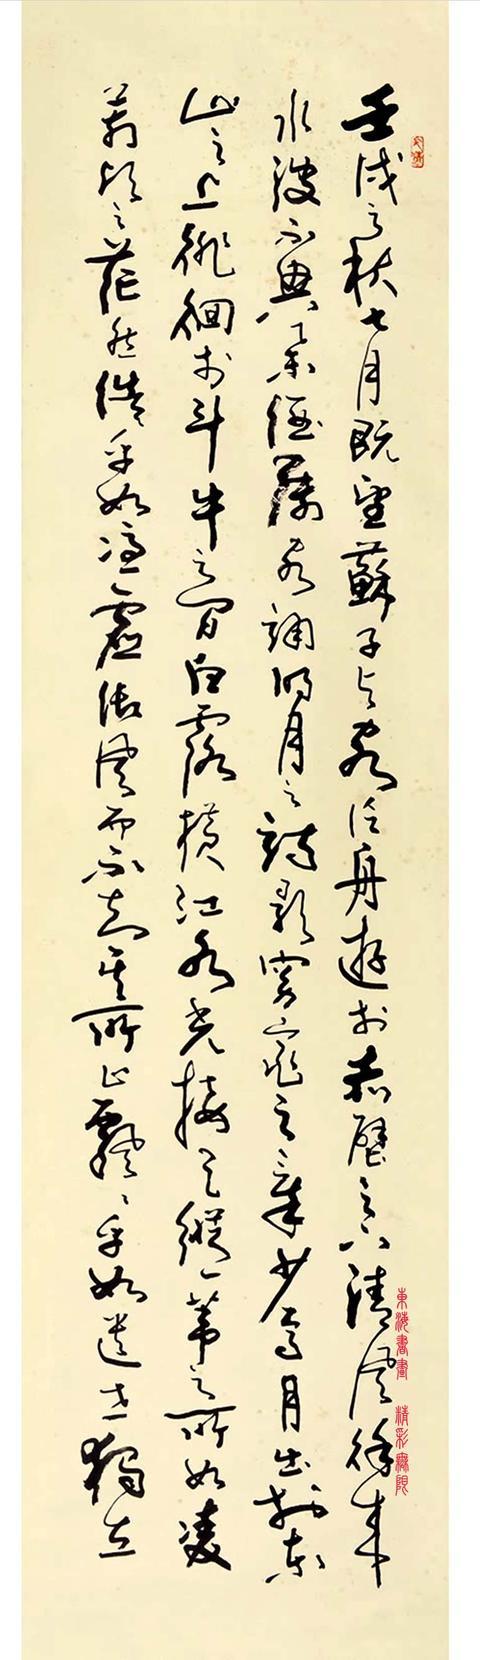 壬戌之秋七月既望蘇子与客泛舟遊於赤壁之下清風徐來
水波不興舉酒屬客誦明月之詩歌窈窕之章少焉月出於東
山之上徘徊於斗牛之間白露橫江水光接天縱一葦之所如凌
萬頃之茫然浩浩乎如馮虛御風而不知其所止飄飄乎如遺世獨立
東海書畫 精彩無限